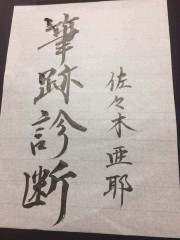 筆跡診断
佐々木亜耶